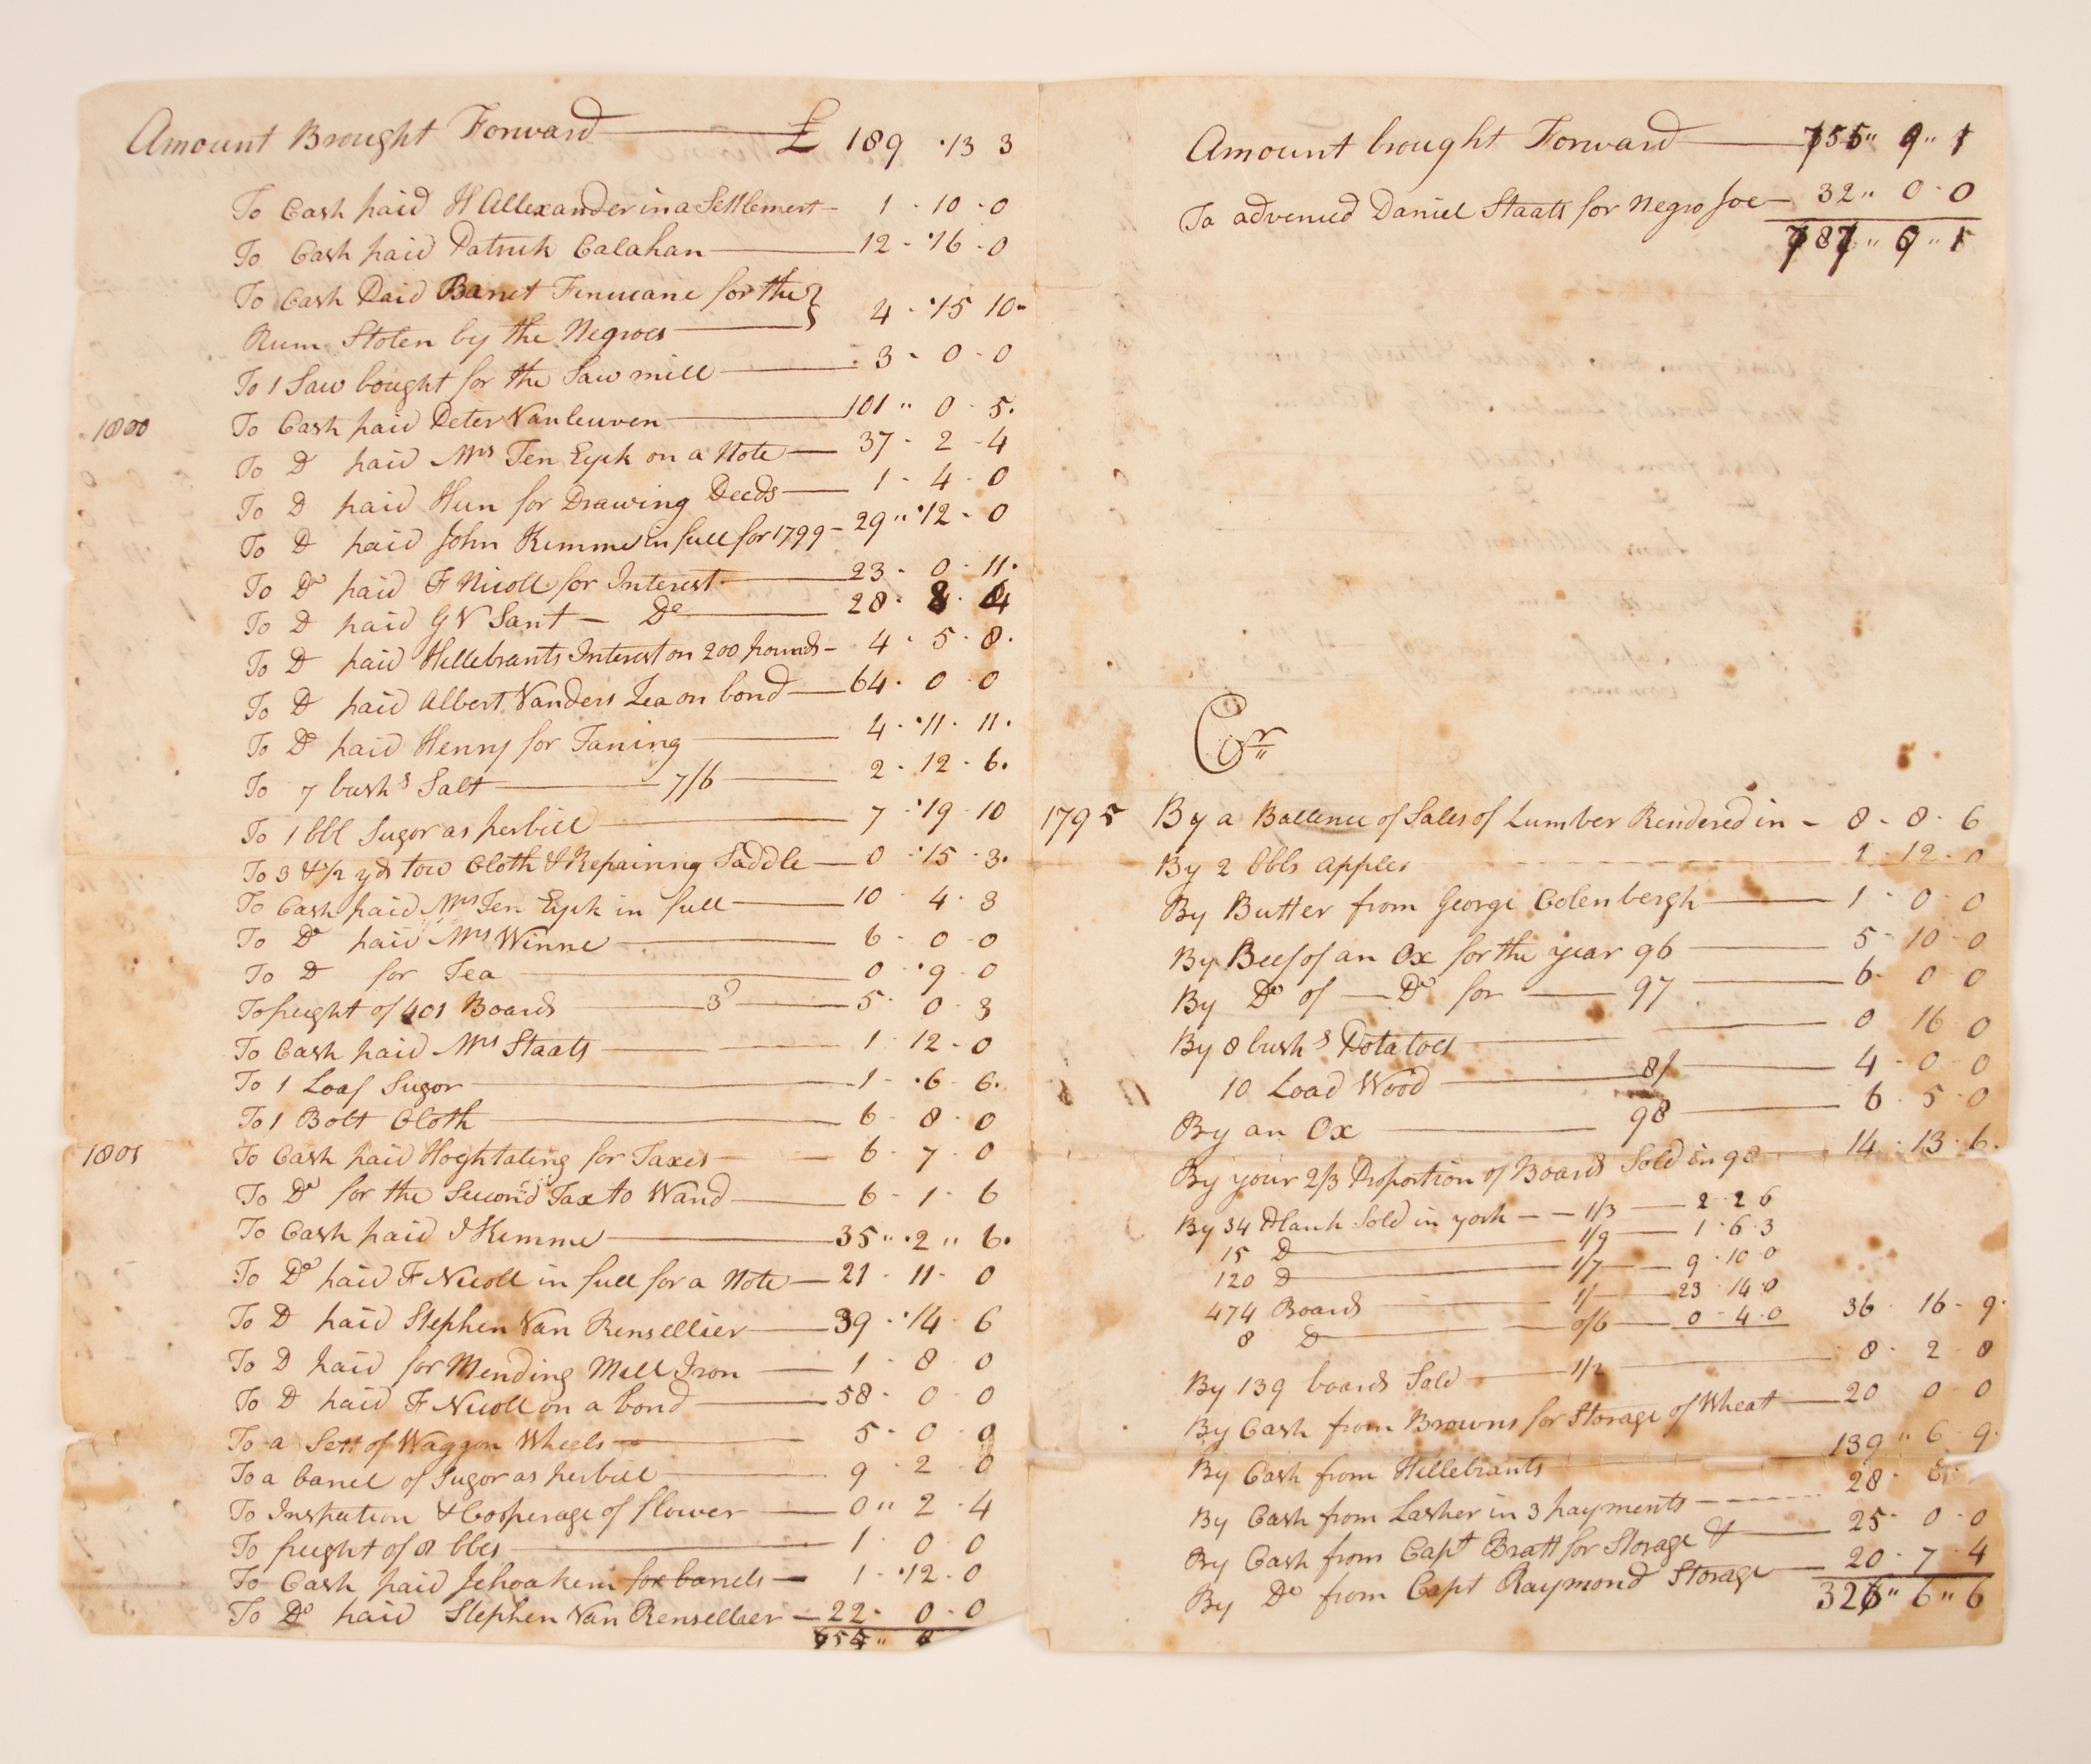 Amount Brought Forward £ 189 . 13 3
To Cash paid H Allexander in a Settlement 1 - 10 - 0
To Cash paid Patrick Calahan 12 - 16 - 0
To Cash Paid Barret Finucane for the }
Rum Stolen by the Negroes 4 - 15 10
To 1 Saw bought for the Saw mill 3 - 0 - 0
1800 To Cash paid Peter Vanleuven 101 " 0 - 5
To Do paid Mrs Ten Eyck on a Note 37 - 2 - 4
To Do paid Hun for Drawing Deeds 1 - 4 - 0
To Do paid John Kimme in full for 1799 - 29 " 12 - 0
To Do paid F Nicoll for Interest 23 - 0 - 11
To Do paid G V Sant - Do 28 - 8 - 4
To Do paid Hillebrants Interest on 200 pounds - 4 - 5 - 8
To Do paid Albert Vanders Zea on bond 64 - 0 - 0
To Do paid Henry for Taning 4 - 11 - 11
To 7 bushs Salt 7/6 2 - 12 - 6
To 1 bbl Sugor as perbill 7 - 19 - 10
To 3 & 1/2 yds tow Cloth & Repairing Saddle 0 - 15 - 3
To Cash paid Mrs Ten Eyck in full 10 - 4 - 3
To Do paid Mrs Winne 6 - 0 - 0
To Do for Tea 0 - 9 - 0
To frught of 401 Boards 3d 5 - 0 - 3
To Cash paid Mrs Staats 1 - 12 - 0
To 1 Loaf Sugor 1 - 6 - 6
To 1 Bolt Cloth 6 - 8 - 0
1801 To Cash paid Hoghtaling for Taxes 6 - 7 - 0
To Do for the Second Tax to Wand 6 - 1 - 6
To Cash paid J Kimme 35 " 2 " 6
To Do paid F Nicoll in full for a Note 21 - 11 - 0
To Do paid Stephen Van Rensellier 39 - 14 - 6
To D paid for Mending Mill Iron 1 - 8 - 0
To D paid F Nicoll on a bond 58 - 0 - 0
To a Sett of Waggon Wheels 5 - 0 - 0
To a barrel of Sugor as perbill 9 - 2 - 0
To Inspection & Cooperage of flower 0 " 2 - 4
To frught of 8 bbls 1 - 0 - 0
To Cash paid Jehoakem for barrels 1 - 12 - 0
To Do paid Stephen Van Rensellaer 22 - 0 - 0
Amount brought Forward 755 " 9 " 1
To advenced Daniel Staats for Negro Joe 32 " 0 - 0
787 " 9 " 1
Cr
1795 By a Ballence of Sales of Lumber Rendered in - 8 - 8 - 6
By 2 bbls apples 1 - 12 - 0
By Butter from George Colenbergh 1 - 0 - 0
By Beef of an Ox for the year 96 5 - 10 - 0
By Do of Do for 97 6 - 0 - 0
By 8 bushs Potatoes 0 16 0
10 Load Wood 8/ 4 - 0 - 0
By an Ox 98 6 - 5 - 0
By your 2/3 Proportion of Boards Sold in 98 14 - 13 - 6
By 34 Plank Sold in york 1/3 2 - 2 6
15 D 1/9 1 - 6 - 3
120 D 1/7 9 - 10 - 0
474 Boards 1/ 23 - 14 - 0
8 D 0/6 0 - 4 - 0 36 - 16 - 9
By 139 boards Sold 1/2 8 - 2 - 8
By Cash from Browns for Storage of Wheat 20 0 0
By Cash from Hillebrants 139 " 6 - 9
By Cash from Lasher in 3 payments 28 -
By Cash from Capt Bratt for Storage & 25 - 0 - 0
By Do from Capt Raymond Storage 20 - 7 - 4
326 " 6 " 6